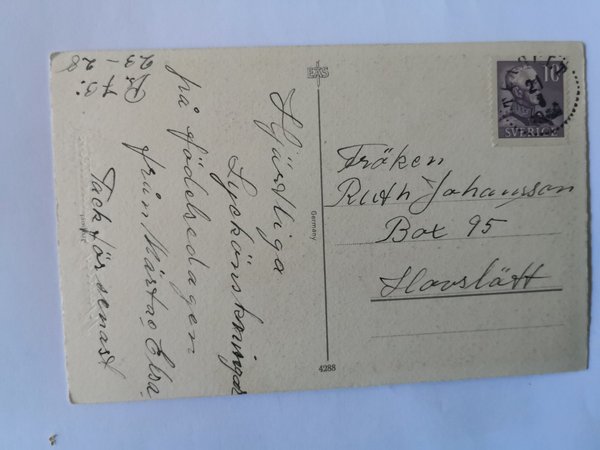 Hjärtliga
Lyckönskningar
på födelsedagen
från Märta o Elsa
Tack för senast
Ps. 73:
23-28
EAS
Germany
4288
10
SVERIGE
Fröken
Ruth Johansson
Box 95
Hovslätt